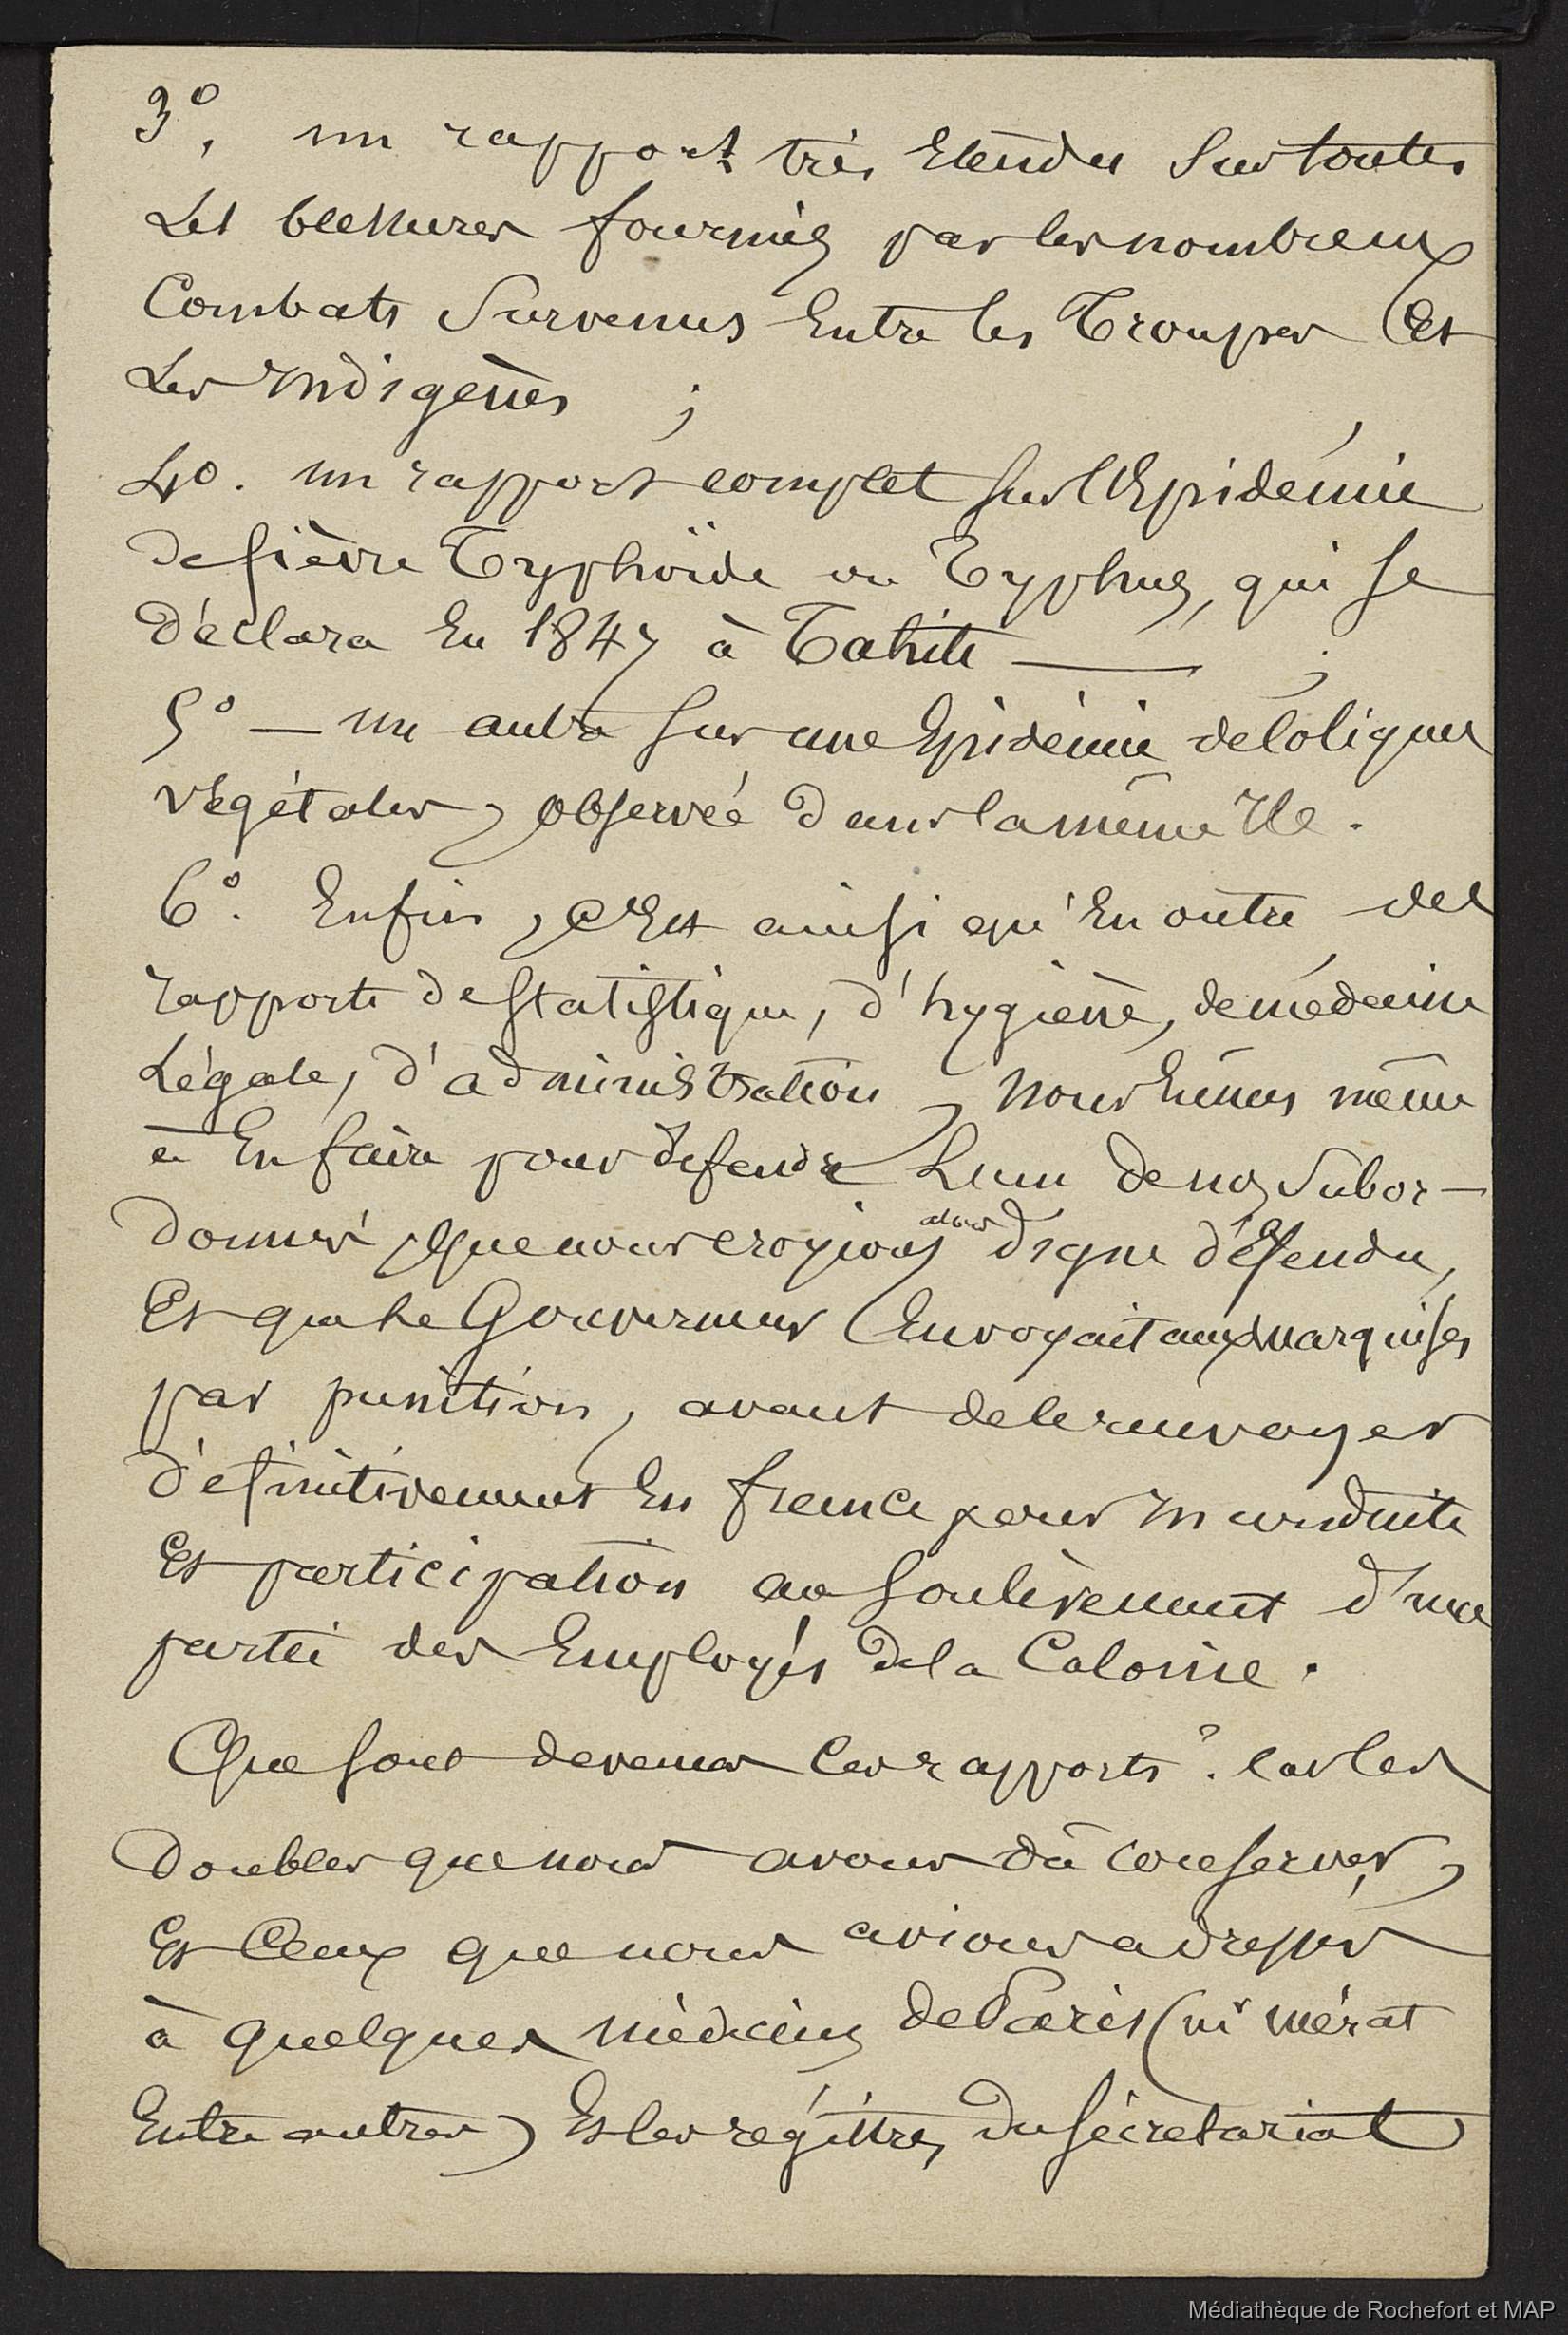 3°, un rapport très Etendu Sur toutes
Les blessures fournies par les nombreux
Combats Survenus Entre les Troupes Et
Les Indigènes ;
4o. un rapport complet sur l'Epidémie
de fièvre Typhoïde ou Typhus, qui se
déclara En 1847 à Tahiti — ;
5° — un autre sur une Epidémie de Coliques
végétales, observée dans la même Ile.
6°. Enfin, C'Est ainsi qu'En outre des
rapports de statistique, d'hygiène, de médecine
Légale, d'administration, nous Eûmes même
à En faire pour défendre L'un de nos Subor-
donnés, que nous croyions alors digne d'Etre défendu,
Et que Le Gouverneur Envoyait aux marquises
par punition, avant de le renvoyer
définitivement En france pour Inconduite
Et participation au soulèvement d'une
partie des Employés de la Colonie.
Que sont devenus Ces rapports ? car les
doubles que nous avons dû conserver,
Et Ceux que nous avions adressés
à quelques médecins de Paris (mr mérat
Entre autres) Et les régistres du sécretariat
Médiathèque de Rochefort et MAP